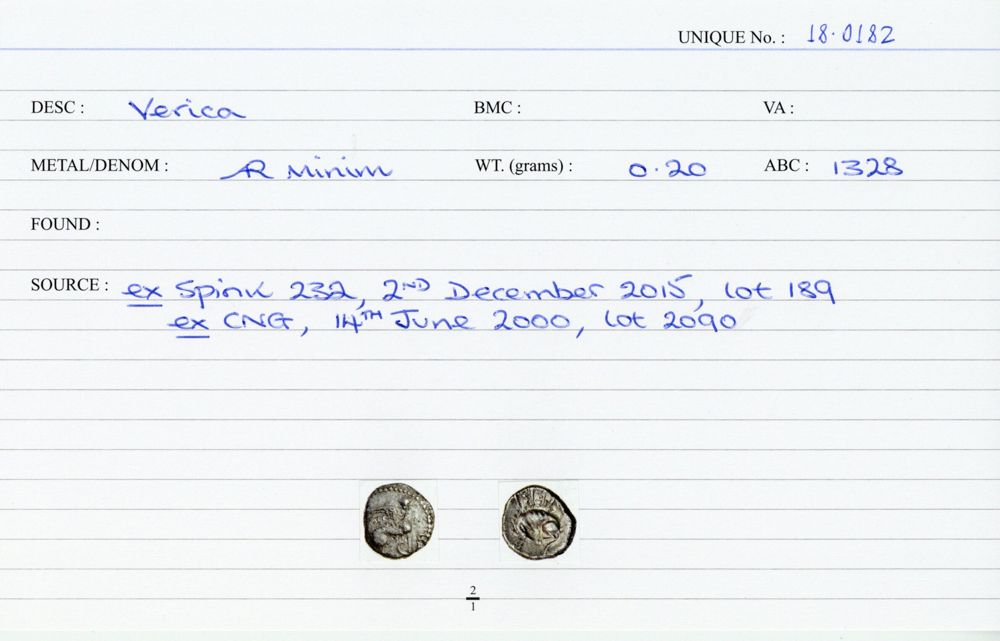 UNIQUE No. : 18·0182
DESC : Verica BMC : VA :
METAL/DENOM : AR Minim WT. (grams) : 0·20 ABC : 1328
FOUND :
SOURCE : ex Spink 232, 2ND December 2015, lot 189
ex CNG, 14TH June 2000, lot 2090
2
1